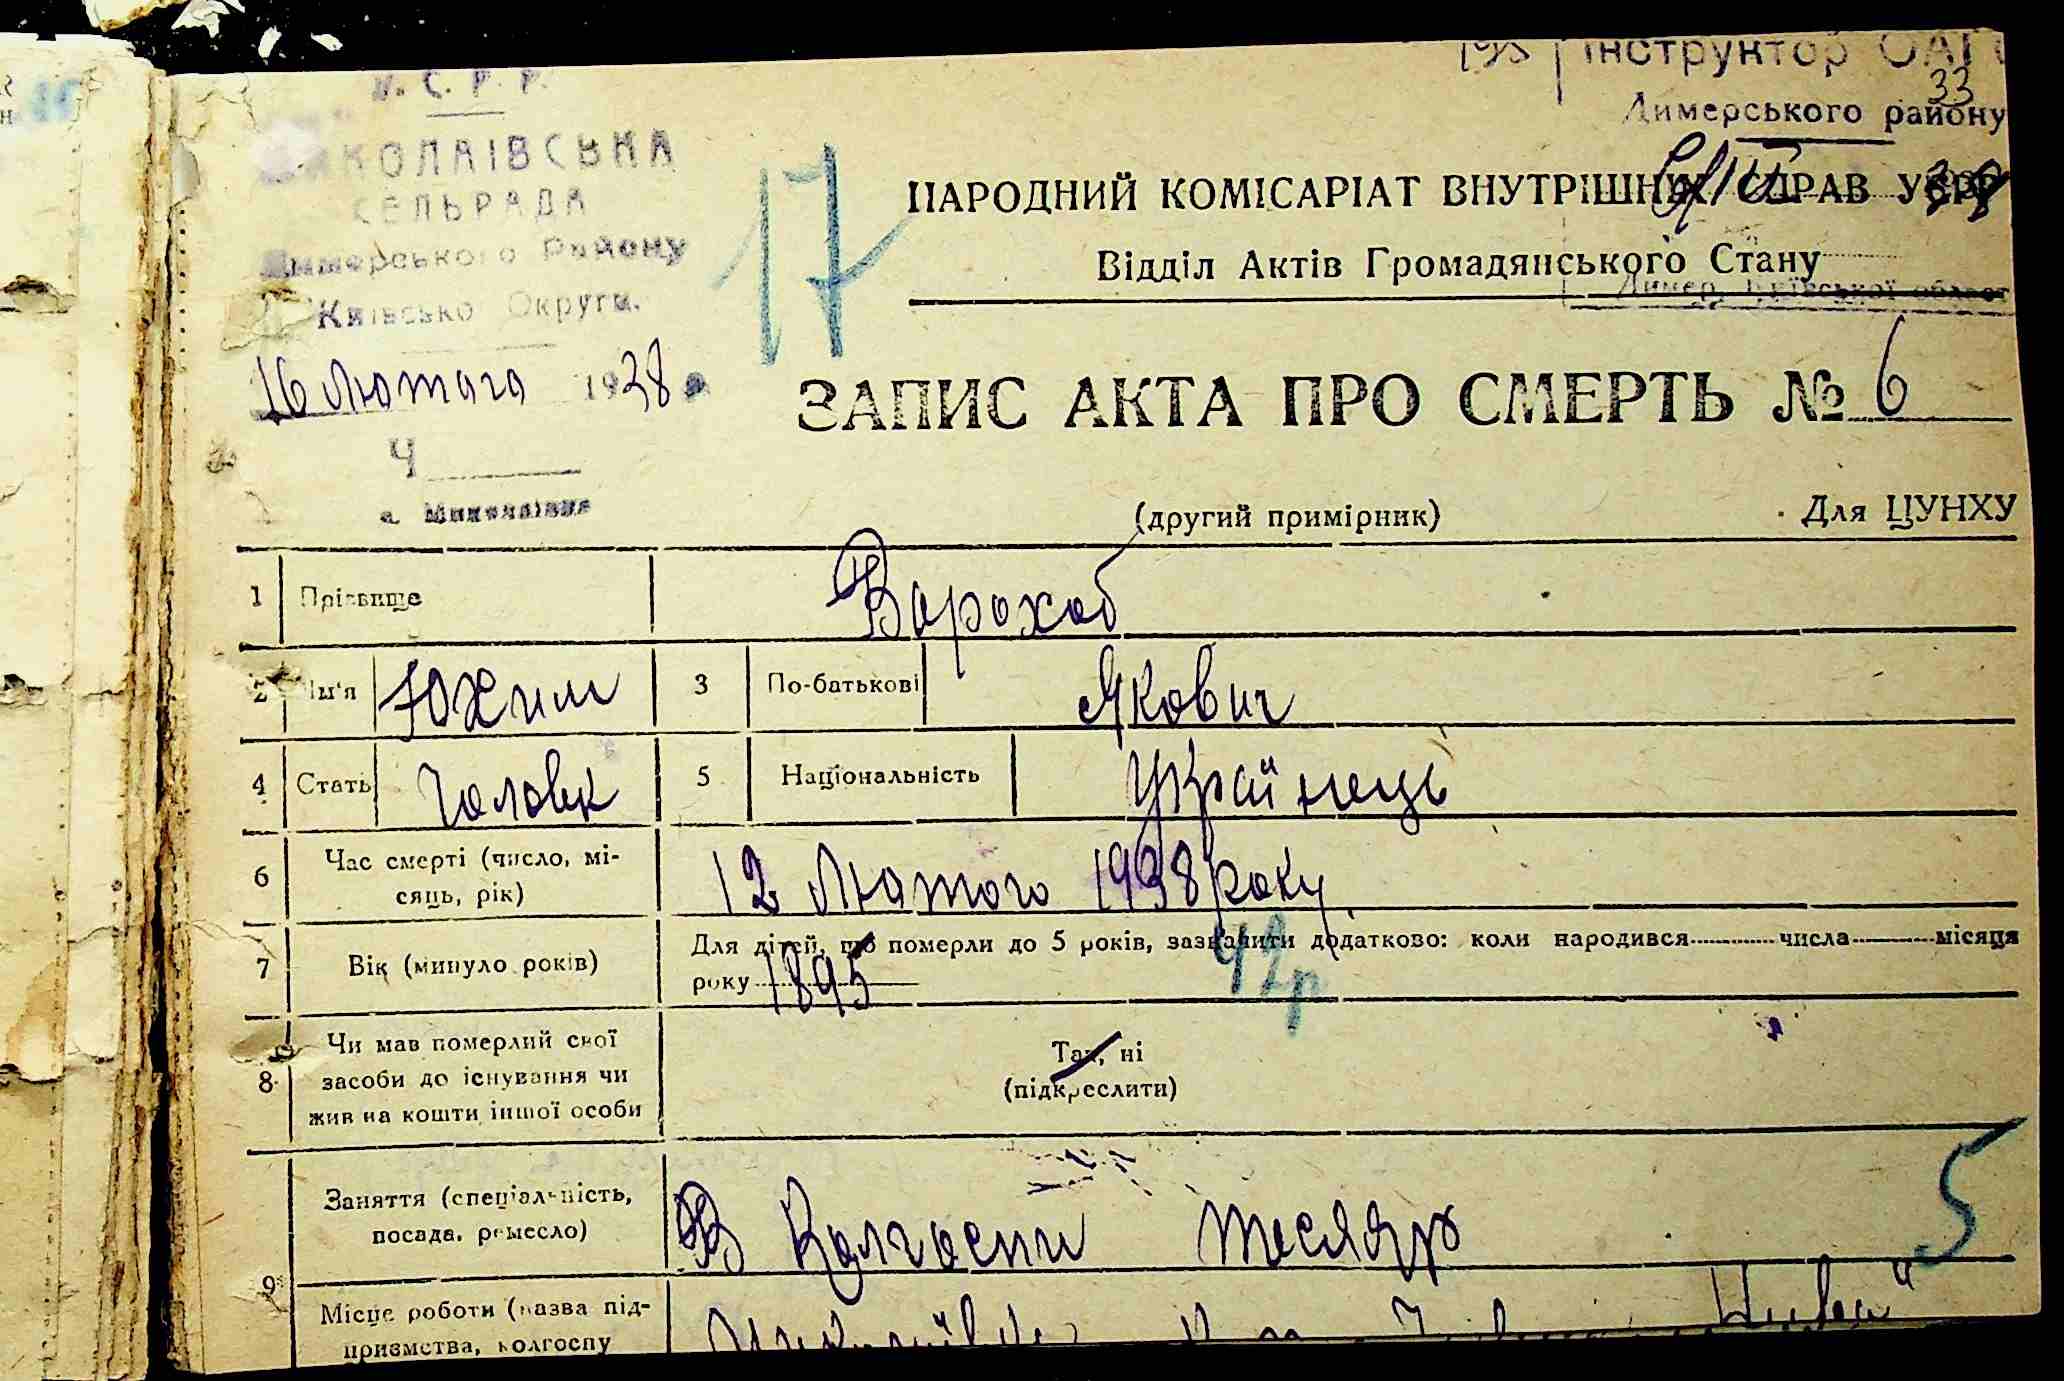 У. С. Р. Р.
МИКОЛАЇВСЬКА
СЕЛЬРАДА
Димерського Району
Київсько Округи.
16 Лютого 1938 р
Ч
с. Миколаївка
17
193
Інструктор ОАГС
33
Димерського району
38
НАРОДНИЙ КОМІСАРІАТ ВНУТРІШНІХ СПРАВ УСРР
Відділ Актів Громадянського Стану
Димер, Київської област
ЗАПИС АКТА ПРО СМЕРТЬ № 6
(другий примірник) Для ЦУНХУ
1 Прізвище Ворохоб
2 Ім'я Юхим 3 По-батькові Якович
4 Стать Чоловк 5 Національність Українець
6 Час смерті (число, мі-
сяць, рік) 12 Лютого 1938 року
7 Вік (минуло років) Для дітей, що померли до 5 років, зазначити додатково: коли народився числа місяця
року 1895 42р
8 Чи мав померлий свої
засоби до існування чи
жив на кошти іншої особи
Так, ні
(підкреслити)
9 Заняття (спеціальність,
посада, ремесло) В Колгоспи тесляр
5
Місце роботи (назва під-
приємства, колгоспу